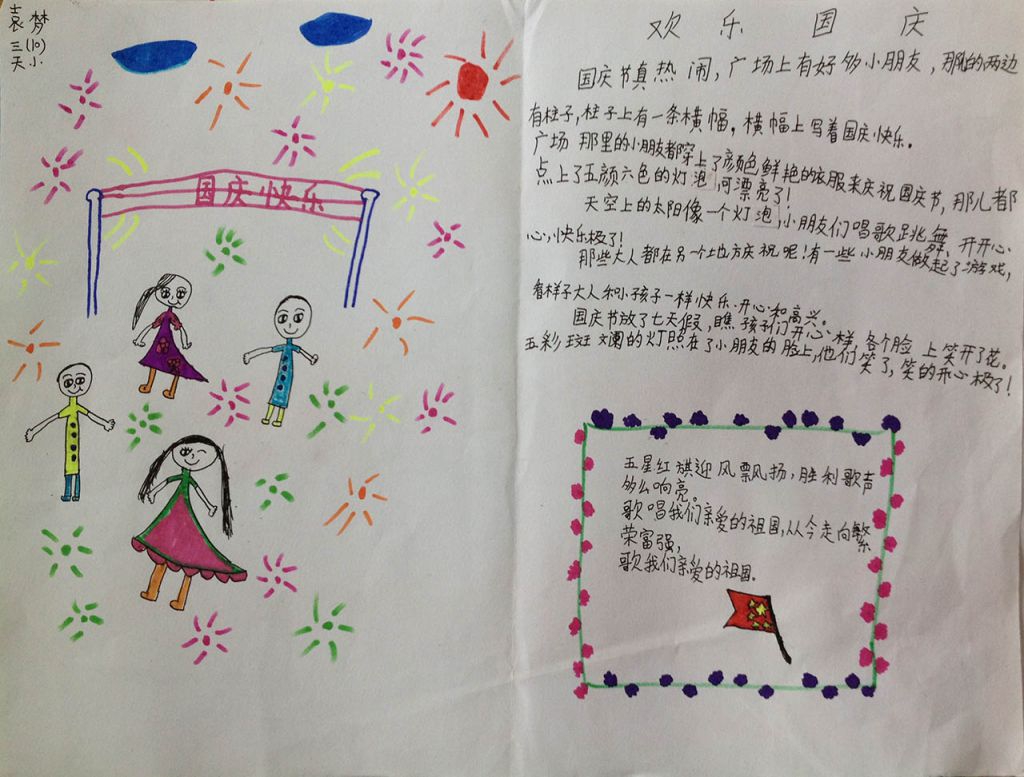 袁梦
三(10)
天小
国庆快乐
欢乐国庆
国庆节真热闹,广场上有好多小朋友,那儿的两边
有柱子,柱子上有一条横幅,横幅上写着国庆快乐。
广场那里的小朋友都穿上了颜色鲜艳的衣服来庆祝国庆节,那儿都
点上了五颜六色的灯泡 河漂亮了!
天空上的太阳像一个灯泡,小朋友们唱歌跳舞、开开心
心,快乐极了!
那些大人都在另个地方庆祝呢!有一些小朋友做起了游戏,
看样子大人和小孩子一样快乐、开心和高兴。
国庆节放了七天假,瞧孩子们开心样,各个脸上笑开了花。
五彩斑斓的灯照在了小朋友的脸上,他们笑了,笑的开心极了!
五星红旗迎风飘扬,胜利歌声
多么响亮。
歌唱我们亲爱的祖国,从今走向繁
荣富强,
歌我们亲爱的祖国.